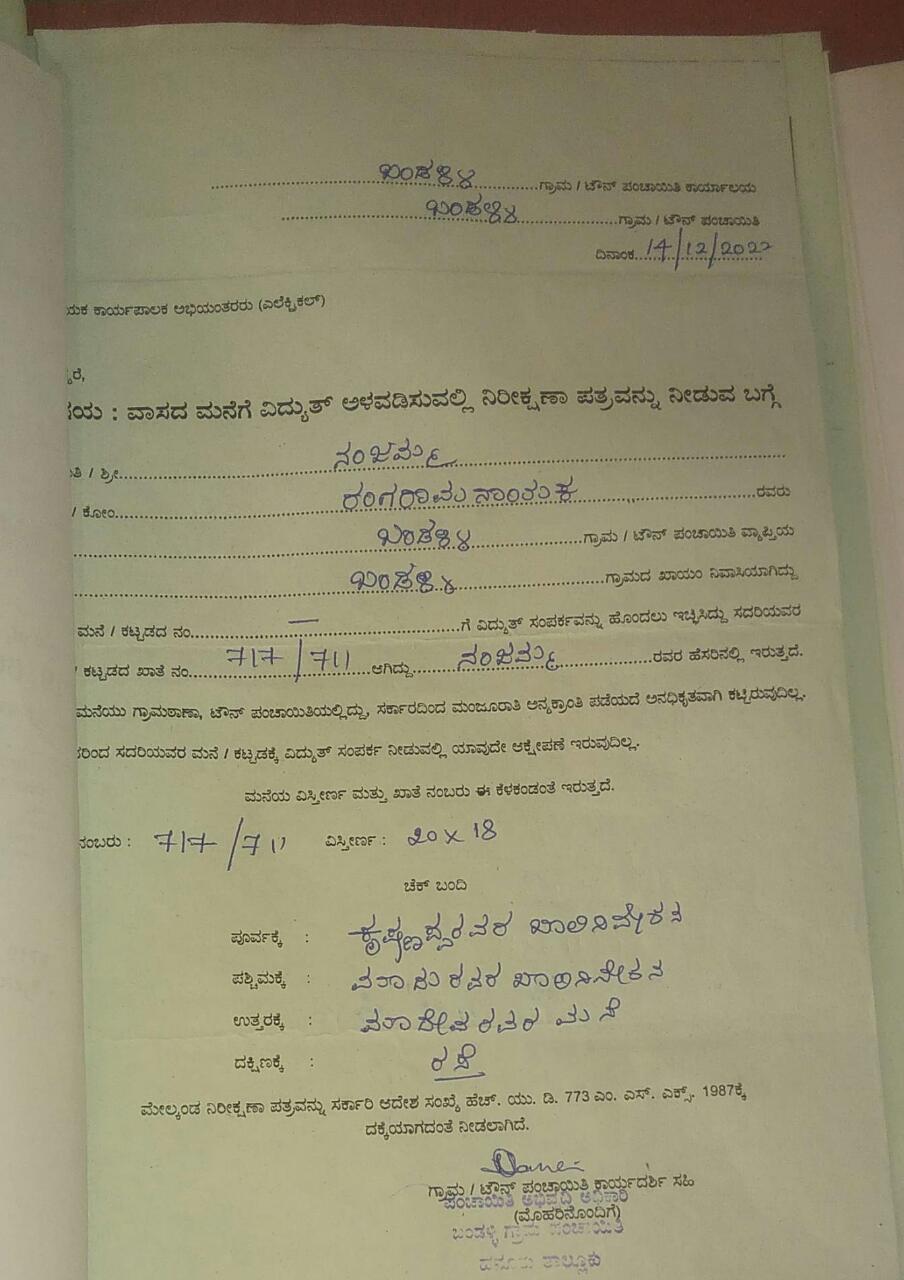 ಬಂಡಳ್ಳಿ ಗ್ರಾಮ / ಟೌನ್ ಪಂಚಾಯಿತಿ ಕಾರ್ಯಾಲಯ
ಬಂಡಳ್ಳಿ ಗ್ರಾಮ / ಟೌನ್ ಪಂಚಾಯಿತಿ
ದಿನಾಂಕ 14/12/2022
ಯಕ ಕಾರ್ಯಪಾಲಕ ಅಭಿಯಂತರರು (ಎಲೆಕ್ಟ್ರಿಕಲ್)
ರೆ,
ಯ : ವಾಸದ ಮನೆಗೆ ವಿದ್ಯುತ್ ಅಳವಡಿಸುವಲ್ಲಿ ನಿರೀಕ್ಷಣಾ ಪತ್ರವನ್ನು ನೀಡುವ ಬಗ್ಗೆ
ತಿ / ಶ್ರೀ ನಂಜಮ್ಮ
/ ಕೋಂ ರಂಗರಾಮನಾಯಕ ರವರು
ಬಂಡಳ್ಳಿ ಗ್ರಾಮ / ಟೌನ್ ಪಂಚಾಯಿತಿ ವ್ಯಾಪ್ತಿಯ
ಬಂಡಳ್ಳಿ ಗ್ರಾಮದ ಖಾಯಂ ನಿವಾಸಿಯಾಗಿದ್ದು
ಮನೆ / ಕಟ್ಟಡದ ನಂ — ಗೆ ವಿದ್ಯುತ್ ಸಂಪರ್ಕವನ್ನು ಹೊಂದಲು ಇಚ್ಛಿಸಿದ್ದು ಸದರಿಯವರ
/ ಕಟ್ಟಡದ ಖಾತೆ ನಂ 717/711 ಆಗಿದ್ದು ನಂಜಮ್ಮ ರವರ ಹೆಸರಿನಲ್ಲಿ ಇರುತ್ತದೆ.
ಮನೆಯು ಗ್ರಾಮಠಾಣಾ, ಟೌನ್ ಪಂಚಾಯಿತಿಯಲ್ಲಿದ್ದು, ಸರ್ಕಾರದಿಂದ ಮಂಜೂರಾತಿ ಅನ್ಯಕ್ರಾಂತಿ ಪಡೆಯದೆ ಅನಧಿಕೃತವಾಗಿ ಕಟ್ಟಿರುವುದಿಲ್ಲ.
ರಿಂದ ಸದರಿಯವರ ಮನೆ / ಕಟ್ಟಡಕ್ಕೆ ವಿದ್ಯುತ್ ಸಂಪರ್ಕ ನೀಡುವಲ್ಲಿ ಯಾವುದೇ ಆಕ್ಷೇಪಣೆ ಇರುವುದಿಲ್ಲ.
ಮನೆಯ ವಿಸ್ತೀರ್ಣ ಮತ್ತು ಖಾತೆ ನಂಬರು ಈ ಕೆಳಕಂಡಂತೆ ಇರುತ್ತದೆ.
ನಂಬರು : 717/711 ವಿಸ್ತೀರ್ಣ : 20 x 18
ಚೆಕ್ ಬಂದಿ
ಪೂರ್ವಕ್ಕೆ : ಕೃಷ್ಣಪ್ಪರವರ ಖಾಲಿನಿವೇಶನ
ಪಶ್ಚಿಮಕ್ಕೆ : ರವರ ಖಾಲಿನಿವೇಶನ
ಉತ್ತರಕ್ಕೆ : ಮಹಾದೇವರವರ ಮನೆ
ದಕ್ಷಿಣಕ್ಕೆ : ರಸ್ತೆ
ಮೇಲ್ಕಂಡ ನಿರೀಕ್ಷಣಾ ಪತ್ರವನ್ನು ಸರ್ಕಾರಿ ಆದೇಶ ಸಂಖ್ಯೆ ಹೆಚ್. ಯು. ಡಿ. 773 ಎಂ. ಎಸ್. ಎಕ್ಸ್. 1987ಕ್ಕೆ
ದಕ್ಕೆಯಾಗದಂತೆ ನೀಡಲಾಗಿದೆ.
ಗ್ರಾಮ / ಟೌನ್ ಪಂಚಾಯಿತಿ ಕಾರ್ಯದರ್ಶಿ ಸಹಿ
ಪಂಚಾಯಿತಿ ಅಭಿವೃದ್ಧಿ ಅಧಿಕಾರಿ
(ಮೊಹರಿನೊಂದಿಗೆ)
ಬಂಡಳ್ಳಿ ಗ್ರಾಮ ಪಂಚಾಯಿತಿ
ಹನೂರು ತಾಲ್ಲೂಕು